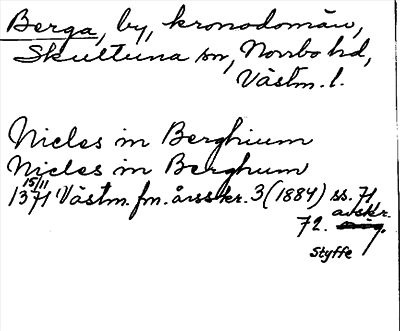 Berga, by, kronodomän,
Skultuna sn, Norrbo hd,
Västm. l.
Nicles in Berghium
Nicles in Berghum
15/11
1371 Västm. fm. årsskr. 3 (1884) ss. 71
avskr.
72.
Styffe